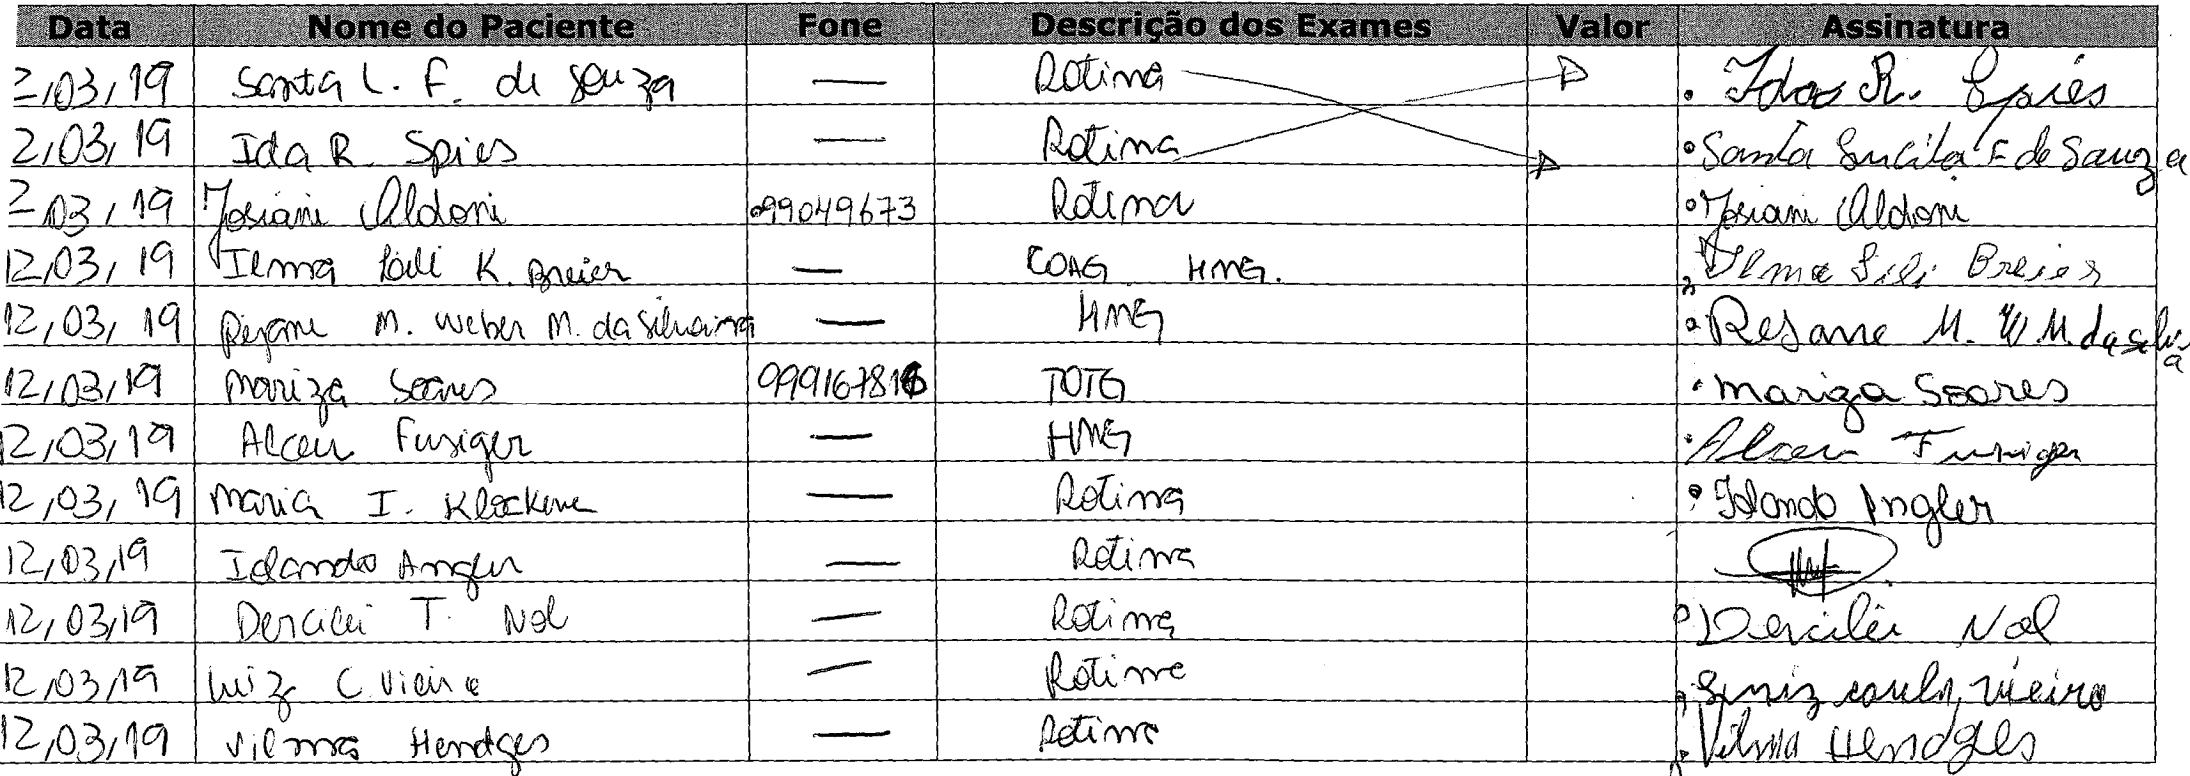 Data Nome do Paciente Fone Descrição dos Exames Valor Assinatura
2,03,19 Santa L. F. de Souza — Rotina Idas R. Spies
2,03,19 Ida R. Spies — Rotina Santa Lucila F de Souza
2,03,19 Josiani Aldoni 99049673 Rotina Josiani Aldoni
12,03,19 Ilma Lili K. Breier — COAG HMG. Ilma Lili Breier
12,03,19 Rejane M. Weber M. da — HMG Rejane M. W M. da Silva
12,03,19 Mariza Soares 999167816 TOTG Mariza Soares
12,03,19 Alceu Fusiger — HMG Alceu Fusiger
12,03,19 Maria I. — Rotina
12,03,19 — Rotina
12,03,19 Dercilei T. Nol — Rotina Dercilei Nol
12,03,19 Luiz C. Vieira — Rotina Luiz Vieira
12,03,19 Vilma Hendges — Rotina Vilma Hendges